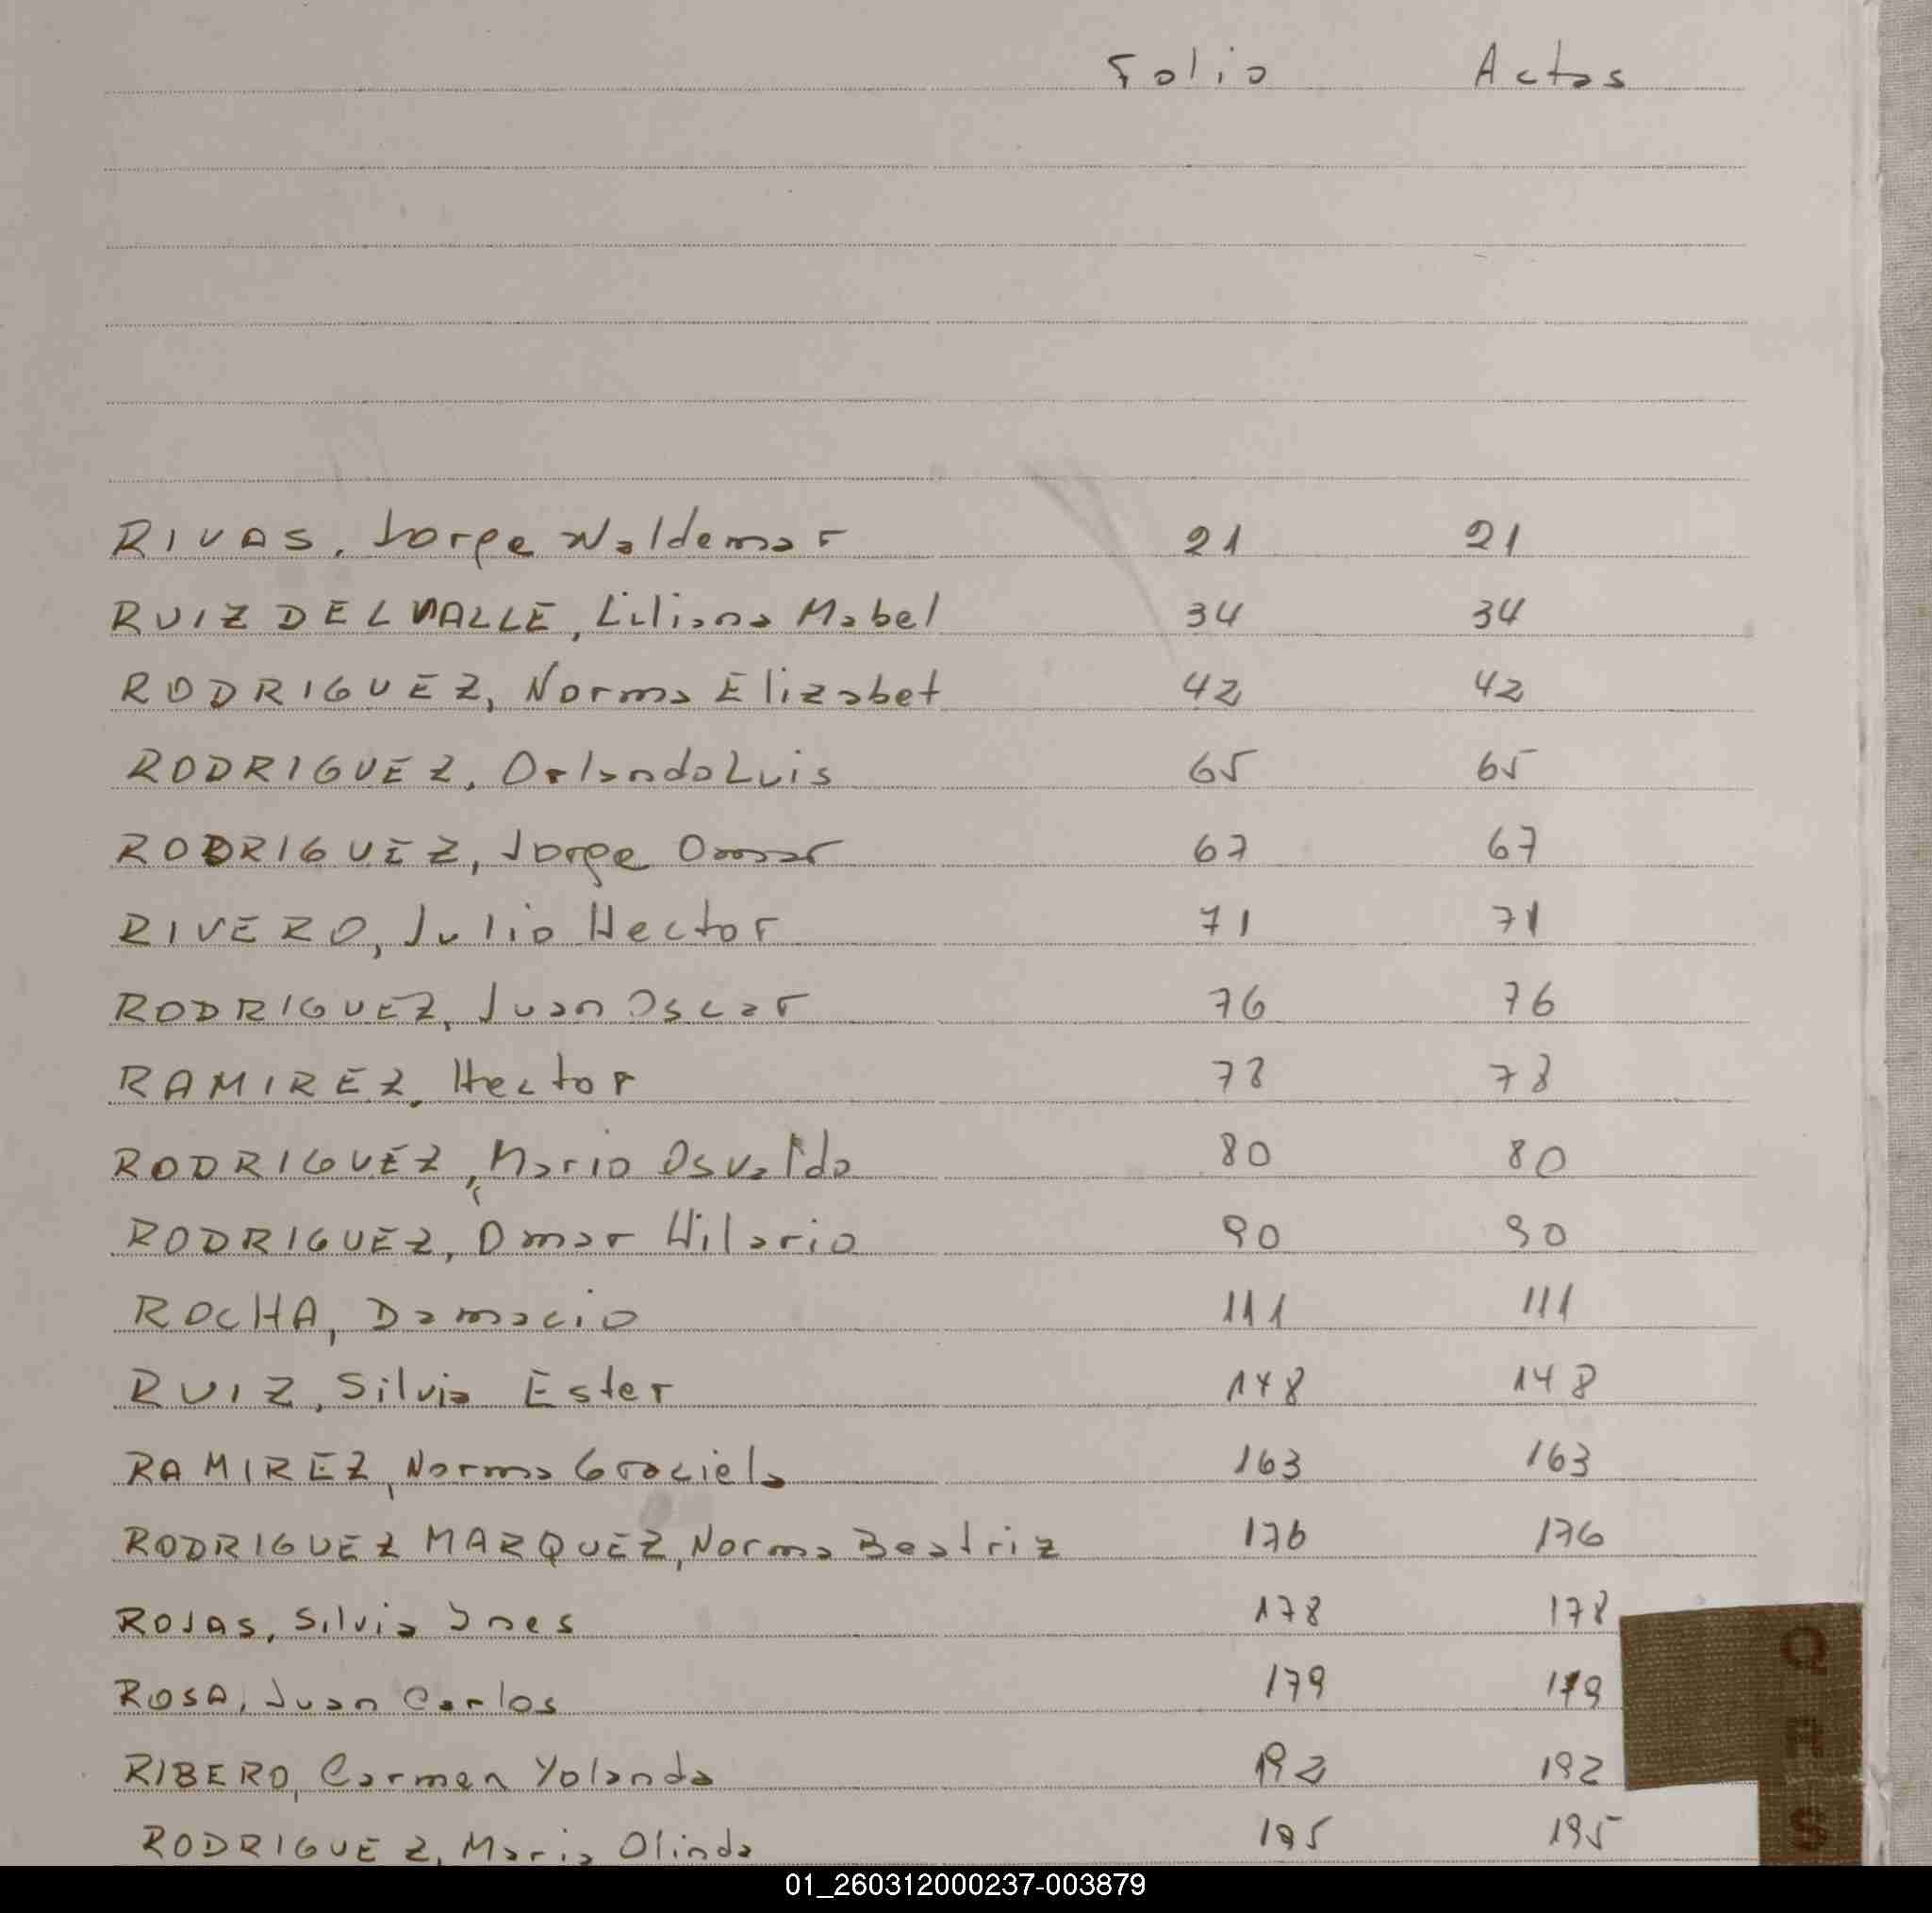 Folio Actas
RIVAS, Jorge Waldemar 21 21
RUIZ DEL VALLE, Liliana Mabel 34 34
RODRIGUEZ, Norma Elizabet 42 42
RODRIGUEZ, Orlando Luis 65 65
RODRIGUEZ, Jorge Omar 67 67
RIVERO, Julio Hector 71 71
RODRIGUEZ, Juan Oscar 76 76
RAMIREZ, Hector 78 78
RODRIGUEZ, Mario Osvaldo 80 80
RODRIGUEZ, Omar Hilario 90 90
ROCHA, Damacio 111 111
RUIZ, Silvia Ester 148 148
RAMIREZ, Norma Graciela 163 163
RODRIGUEZ MARQUEZ, Norma Beatriz 176 176
ROJAS, Silvia Ines 178 178
ROSA, Juan Carlos 179 179
RIBERO, Carmen Yolanda 192 192
RODRIGUEZ, Maria Olinda 195 195
Q
R
S
01_260312000237-003879